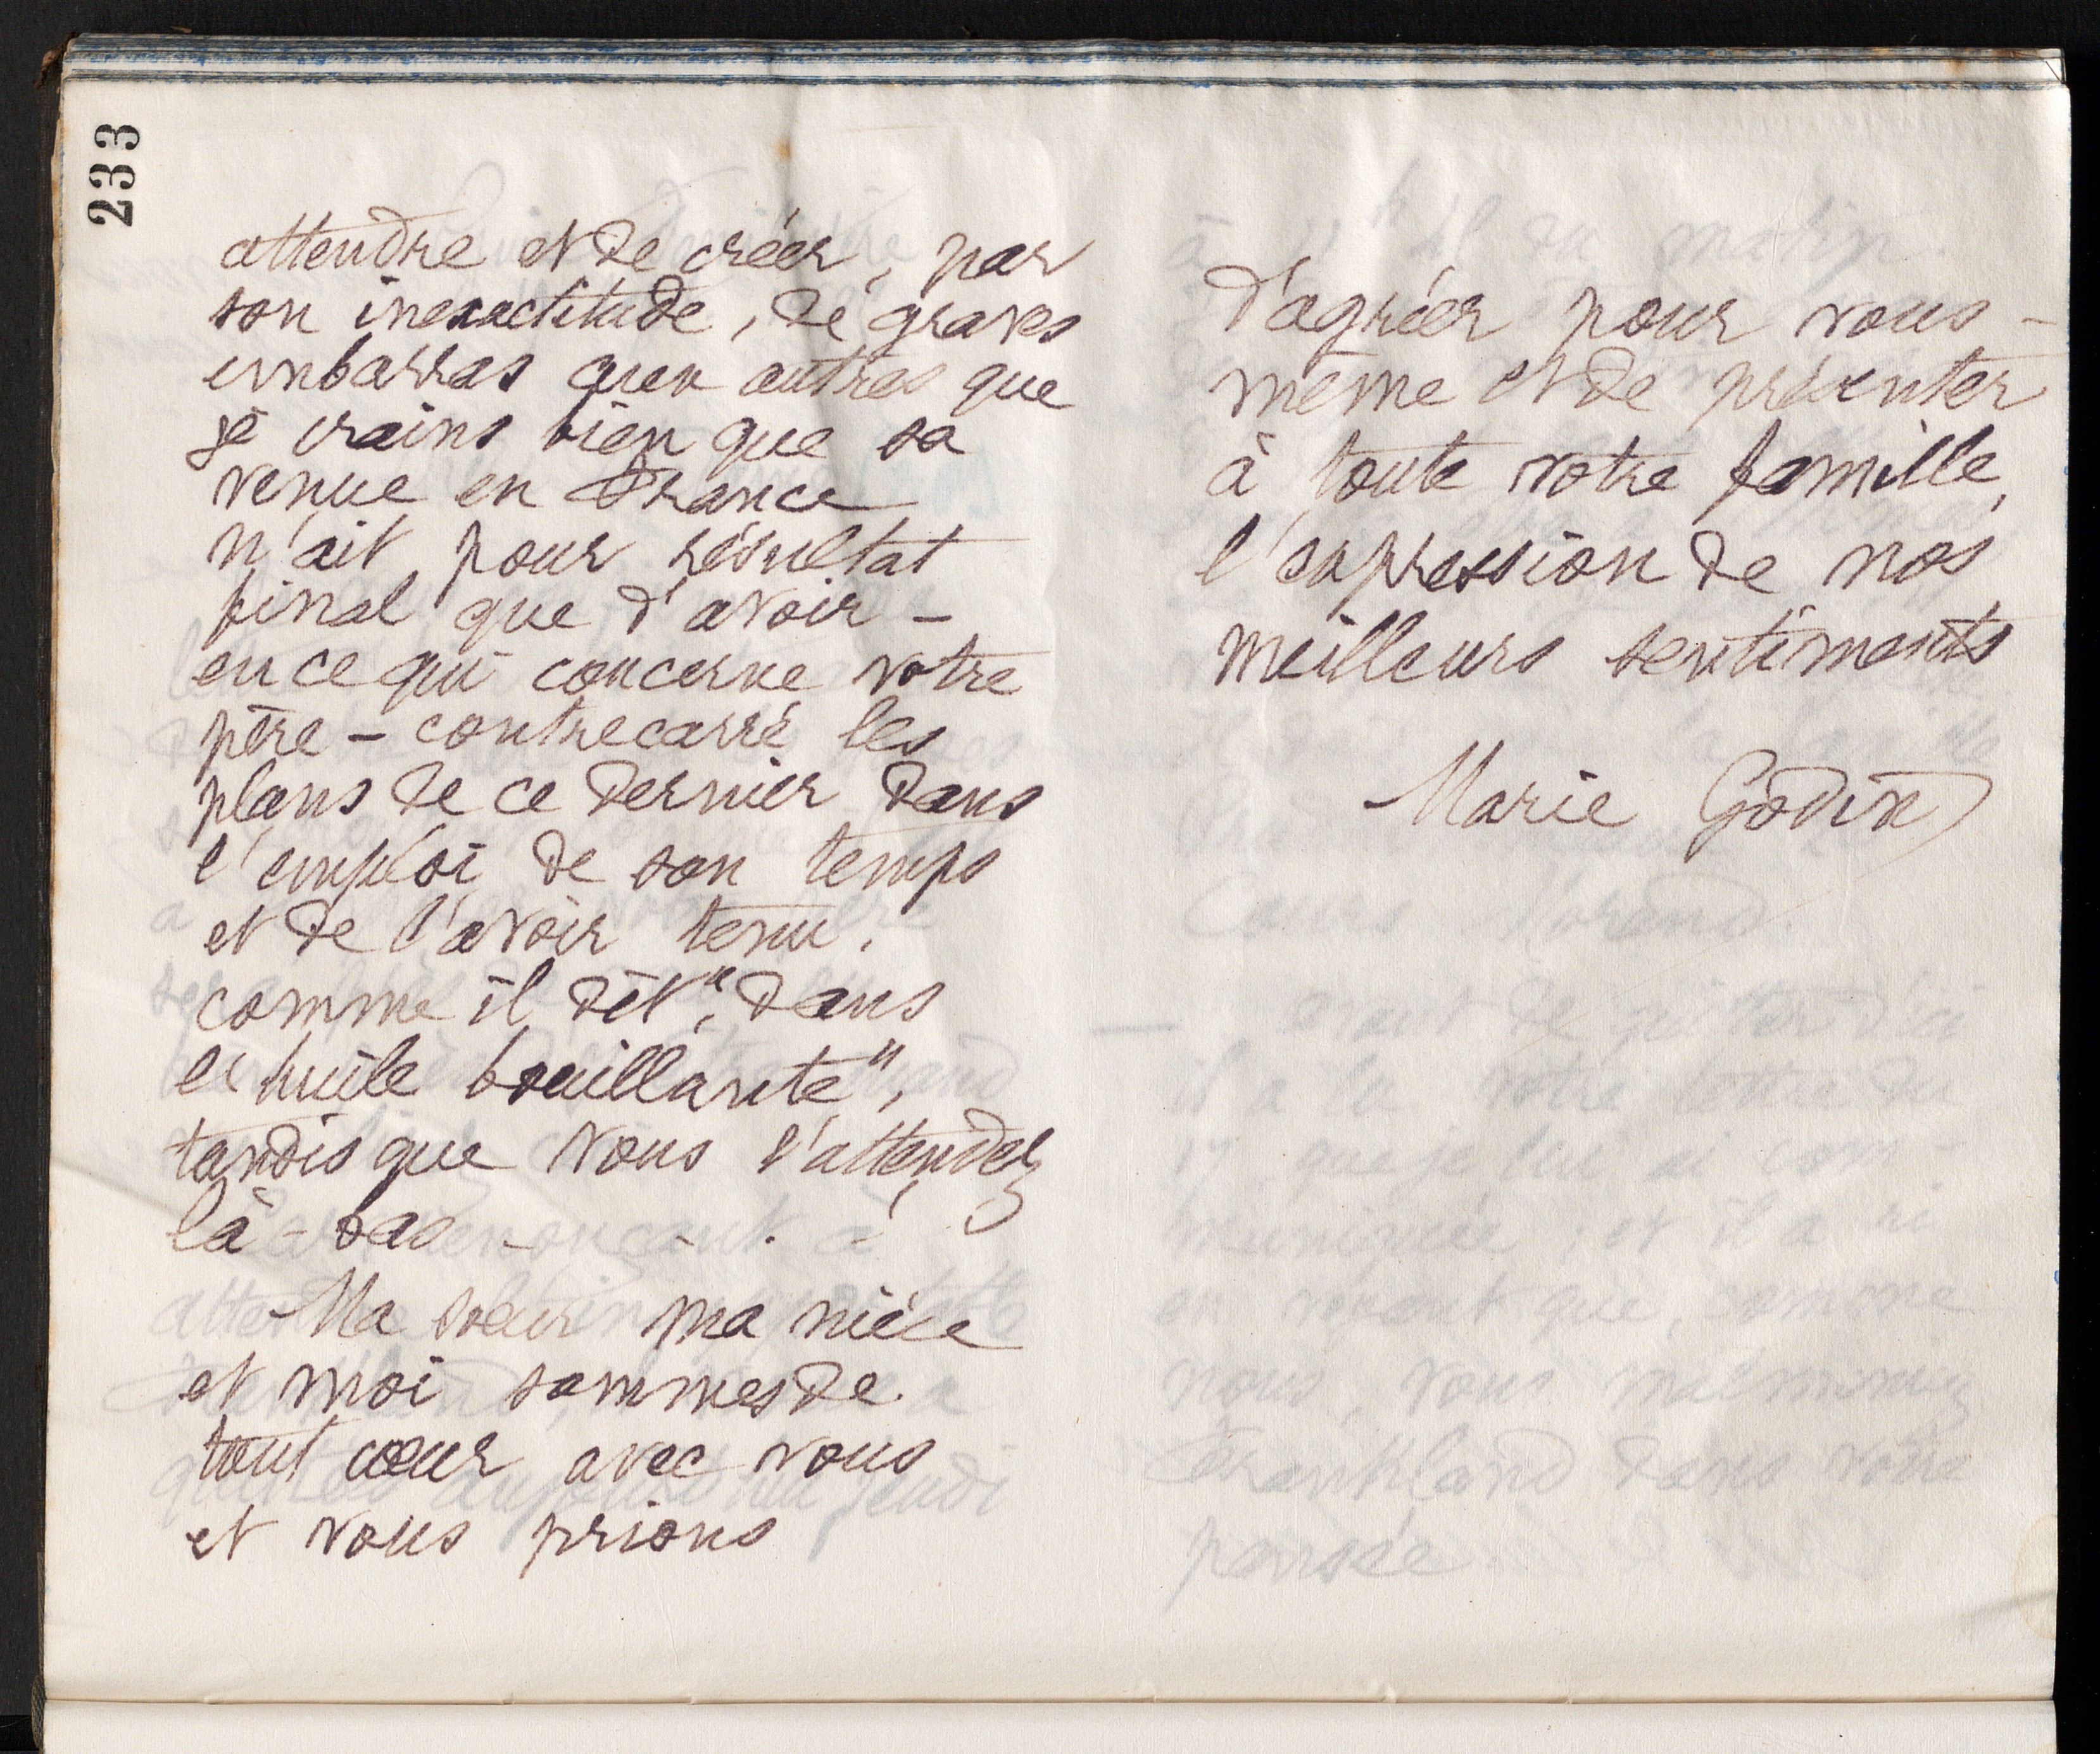 233
attendre et de créer, par
son inexactitude, de graves
embarras aux autres que
je crains bien que sa
venue en France
n'ait pour résultat
final que d'avoir -
en ce qui concerne votre
père - contrecarré les
plans de ce dernier dans
l'emploi de son temps
et de l'avoir tenu,
comme il dit, "dans
l'huile bouillante",
tandis que vous l'attendez
là-bas - - .
Ma soeur ma nièce
et moi sommes de
tout coeur avec vous
et vous prions
d'agréer pour vous-
même et de présenter
à toute votre famille,
l'expression de nos
meilleurs sentiments
Marie Godin